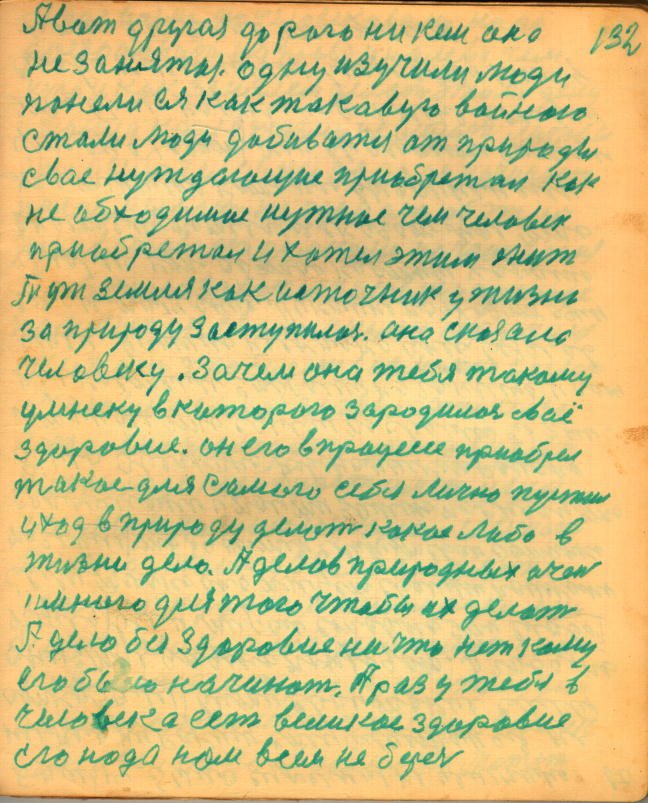 132
А вот другая дорога никем она
не занята. одну изучили люди
понели ся как такавую войного
стали люди добиватся от природы
свае нуждающие приобретал как
не обходимое нужное чем человек
приобретал и хотел этим жит
Тут земля как источник у жизни
за природу заступилас. она сказала
человеку. Зачем она тебя такому
умнеку в каторого зародилос своё
здоровие. он его в процессе приобрел
такое для самого себя лично
уход в природу делат какое либо в
жизни дело. А делов природных очен
много для того чтобы их делат
А дело без здоровие ничто нет кому
его было начинат. А раз у тебя в
человека ест великое здоровие
его нода нам всем не береч